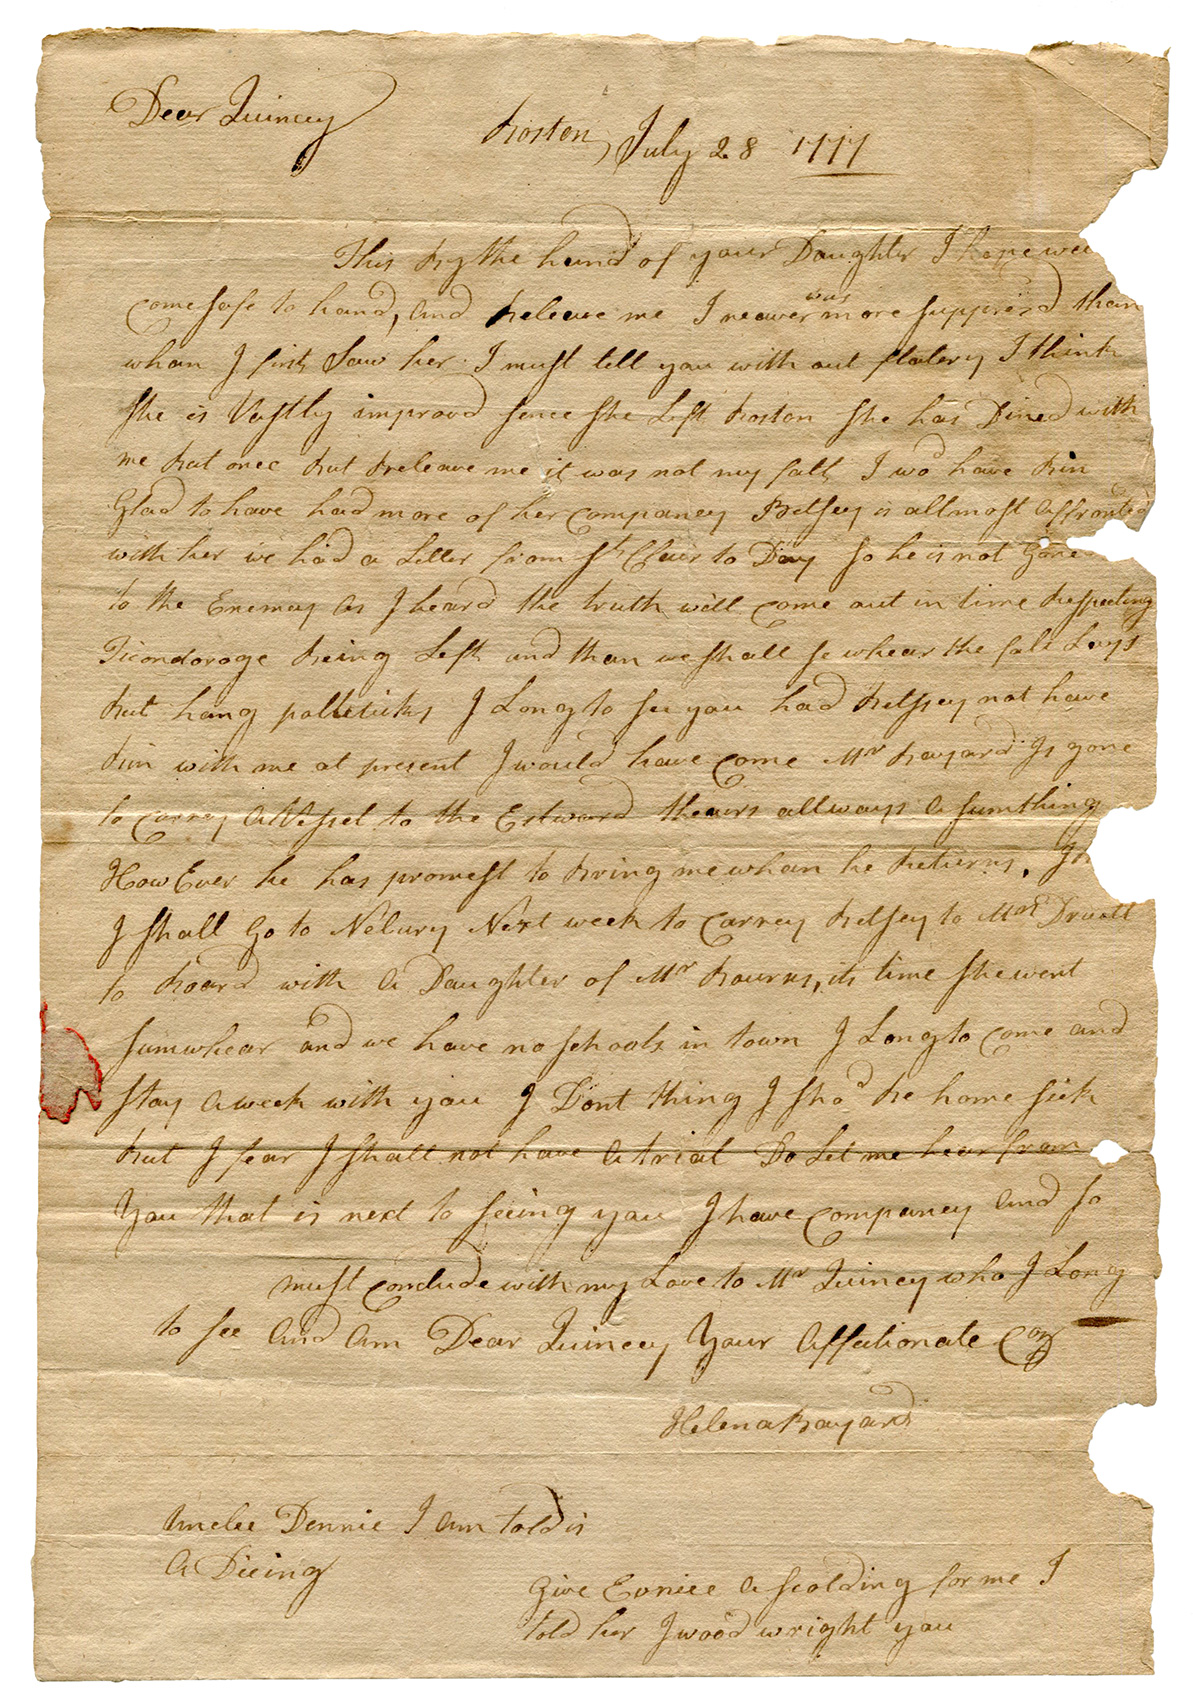 Dear Quincey
Boston, July 28 1777
This by the hand of your Daughter I hope
come safe to hand, and beleave me I neaver was more supprisd than
whan I first Saw her I must tell you with out flatery I think
she is Vastly improavd sence she Left Boston she has Dined with
me but once but beleave me it was not my falt I wod have bin
Glad to have had more of her companey Betsey is allmost affronted
with her we had a Letter from St Clair to Day so he is not Gone
to the Enemey as I heard the truth will come out in time Respecting
Ticondoroge being Left and than we shall se whear the falt Lays
but hang polliticks I Long to see you had Betsey not have
bin with me at present I would have come Mr Bayard Is gone
to carrey a Vessel to the Estward thears allways a sumthing
How Ever he has promest to bring me whan he Returns,
I shall Go to Nebury Next week to Carrey Betsey to Mrs
to board with a Daughter of Mr Bourns, its time she went
sumwhear and we have no schools in town I Long to come and
stay a week with you I Dont thing I shod be home sick
but I fear I shall not have a trial Do Let me hear from
You that is next to seeing you I have companey and so
must conclude with my Love to Mr Quincey who I Long
to see and am Dear Quincey Your affectionate Coz
Helena Bayard
Unclee Dennie I am told is
a Dieing
Give Eunice a scolding for me I
told her I wood wright you